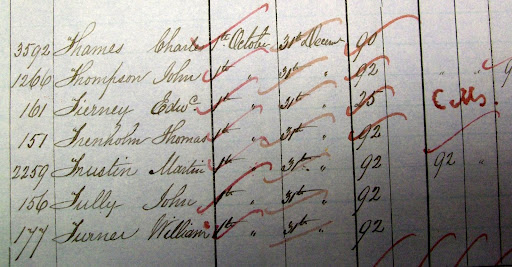 3592 Thames Charles 1st October 31st Decemr 90
1266 Thompson John 1st " 31st " 92 " "
161 Tierney Edwd 1st " 31st " 25
151 Trenholm Thomas 1st " 31st " 92
2259 Trustin Martin 1st " 31st " 92 92 "
156 Tully John 1st " 31st " 92
177 Turner William 1st " 31st " 92